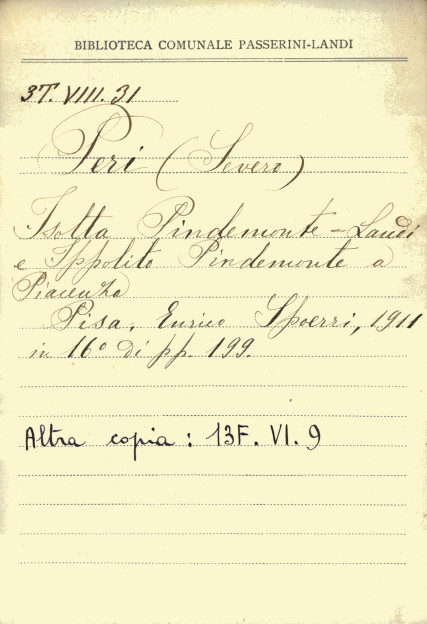 BIBLIOTECA COMUNALE PASSERINI-LANDI
3T. VIII. 31
Peri (Severo)
Isotta Pindemonte - Landi
e Ippolito Pindemonte a
Piacenza
Pisa, Enrico Spoerri, 1911
in 16° di pp. 199.
Altra copia : 13F. VI. 9